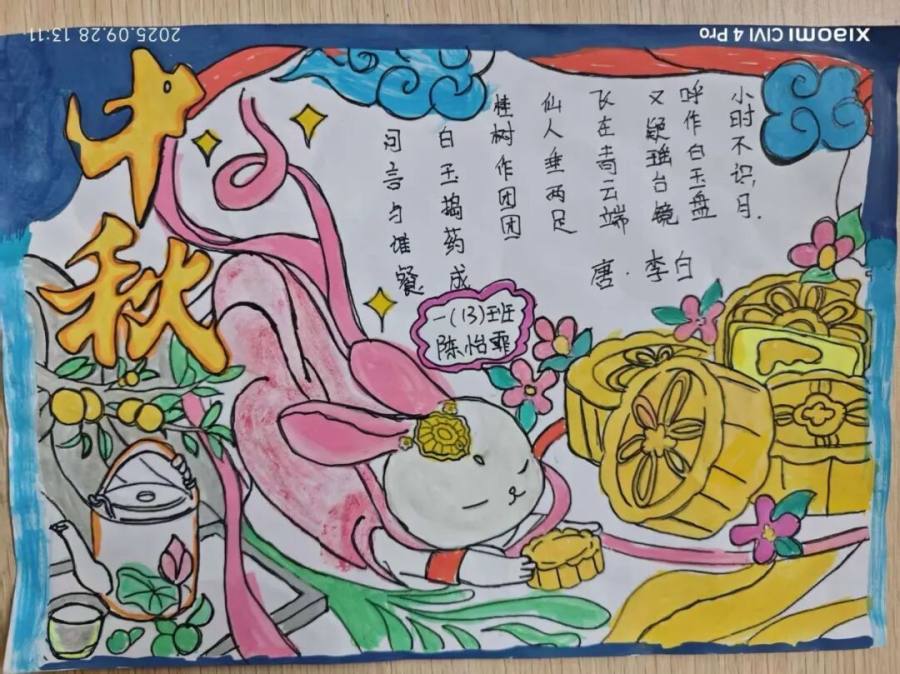 中秋
小时不识月.
呼作白玉盘
又疑瑶台镜
飞在青云端
仙人垂两足
桂树作团团
白玉捣药成
问言与谁餐
唐·李白
一(13)班
陈怡霏
Xiaomi CIVI 4 Pro
2025.09.28 13:11